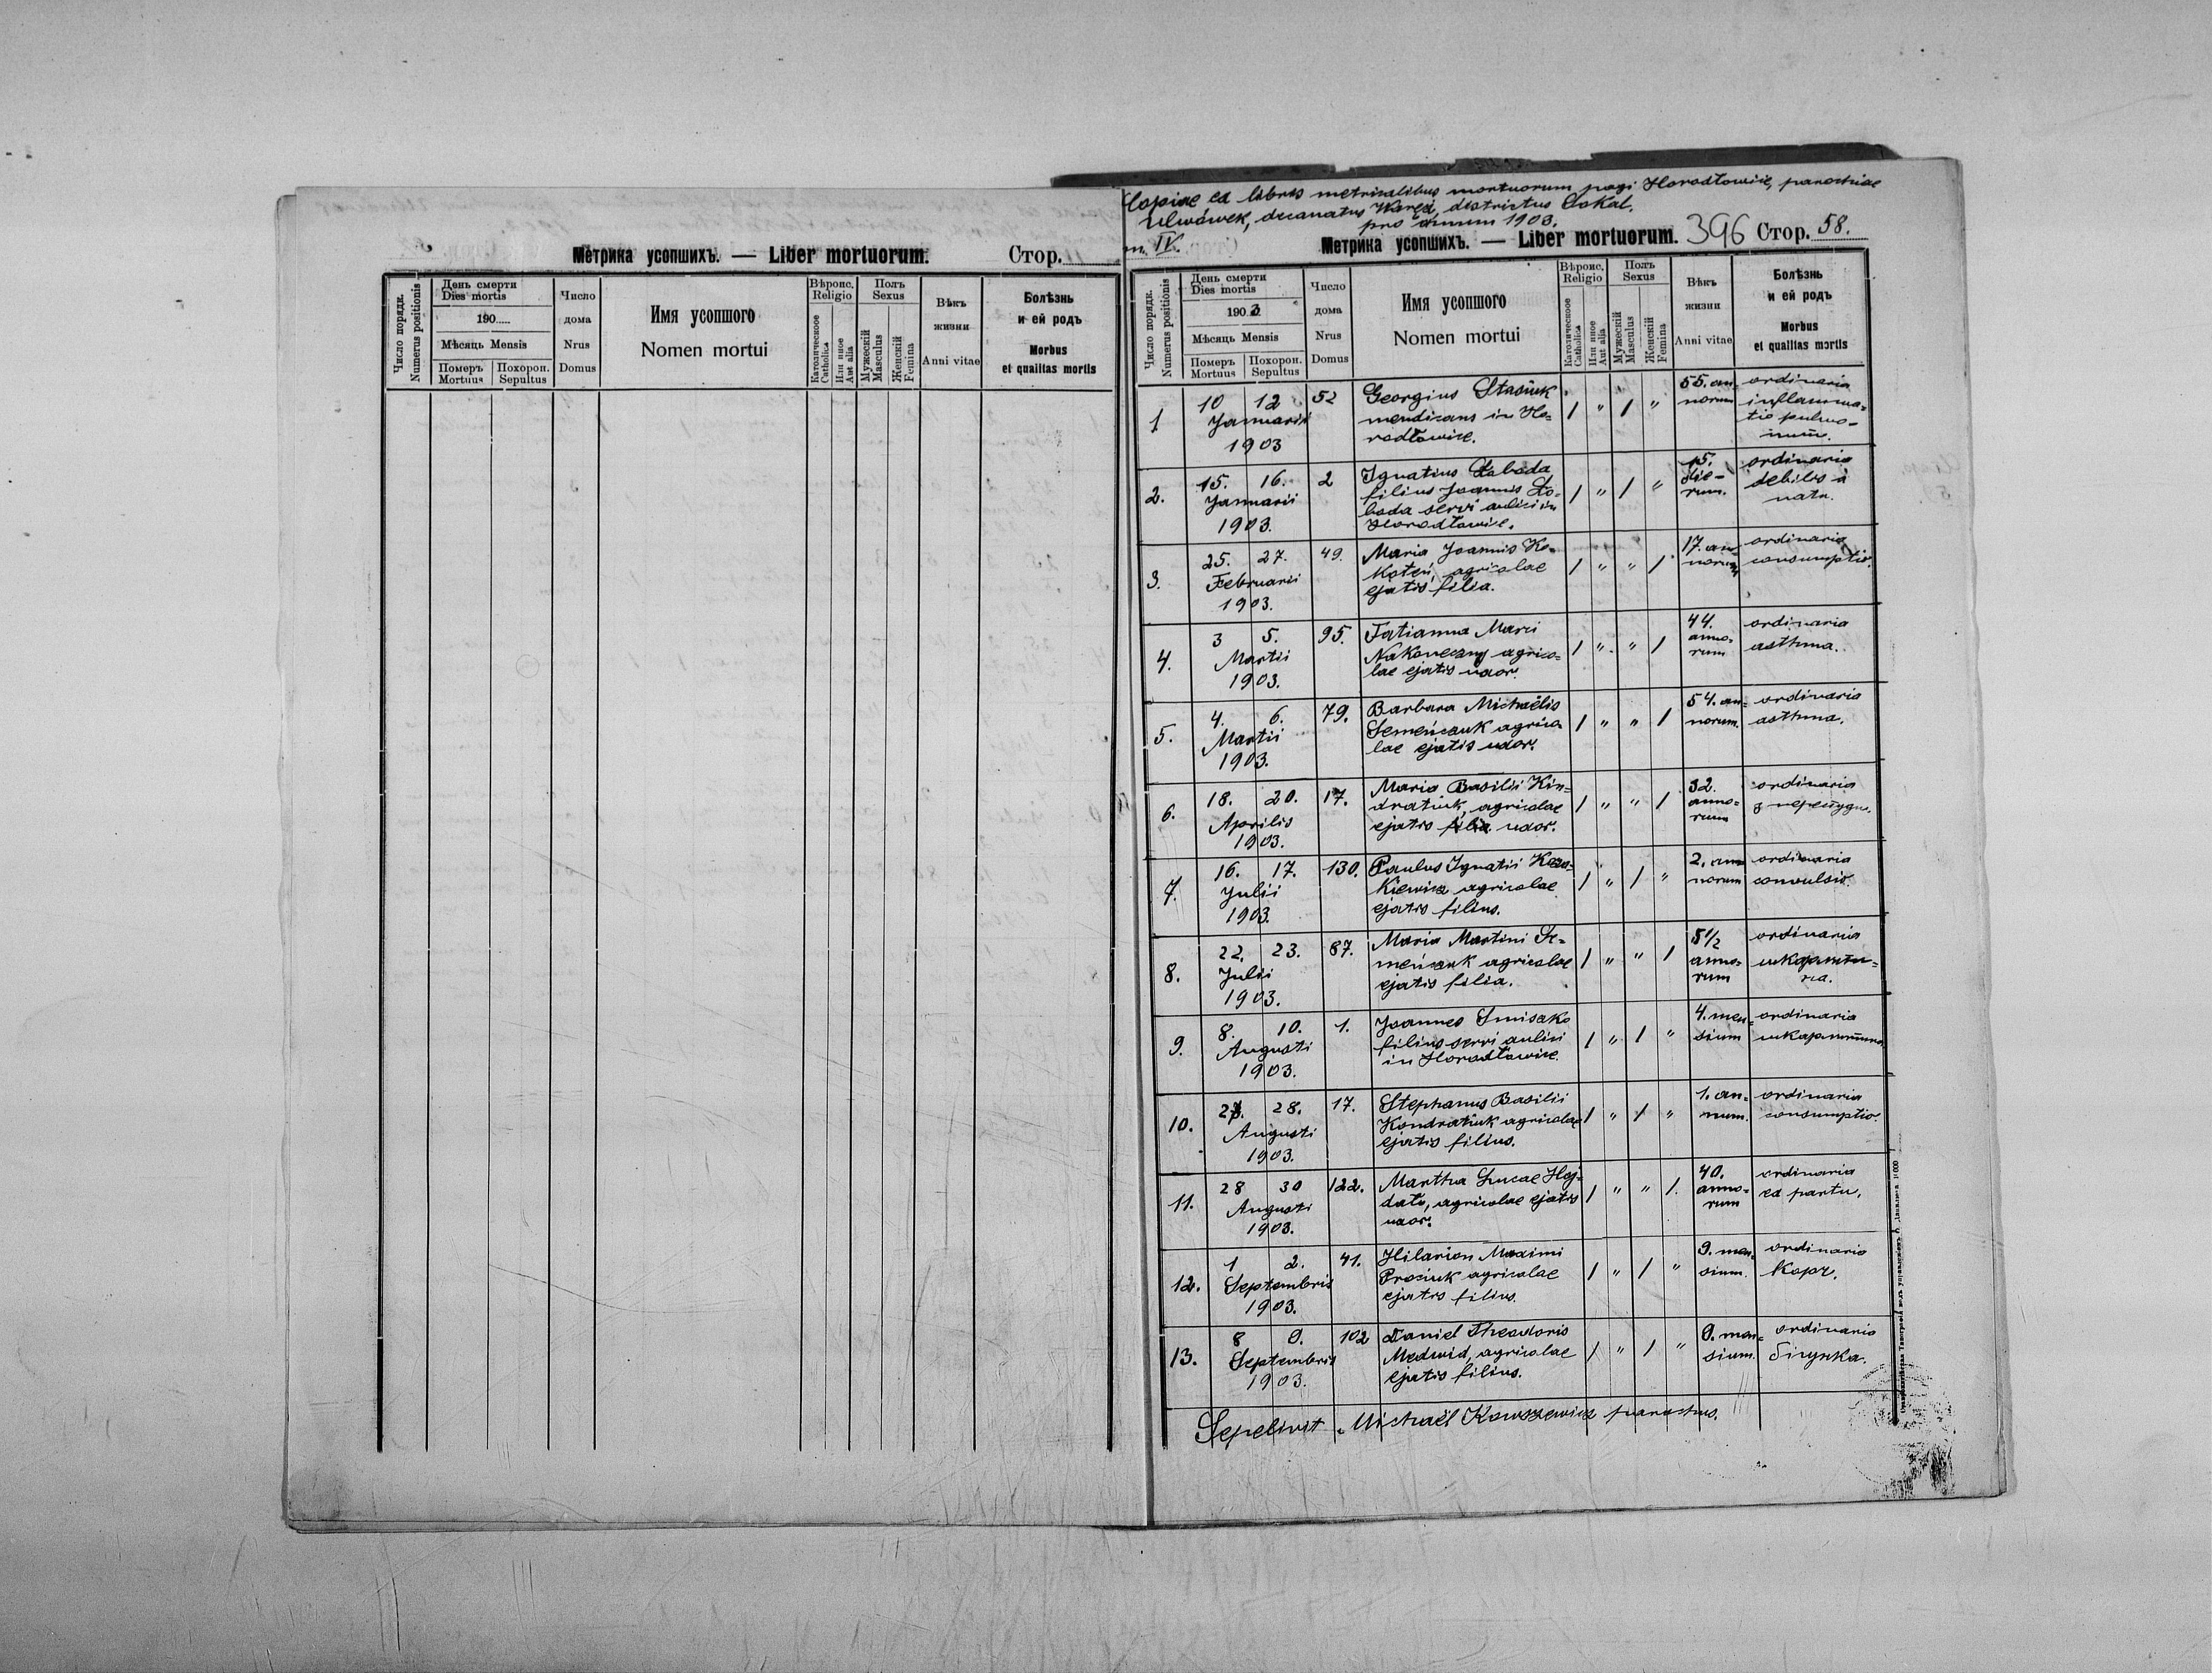 Метрика усопшихъ. — Liber mortuorum. Стор.
Число порядк. Numerus positionis
День смерти Dies mortis
190
Мѣсяць Mensis
Померъ Mortuus
Похорон. Sepultus
Число дома Nrus Domus
Имя усопшого Nomen mortui
Вѣроис. Religio
Католическоое Catholica
Или иное Aut alia
Полъ Sexus
Мужескій Masculus
Женскій Femina
Вѣкъ жизни Anni vitae
Болѣзнь и ей родъ
Morbus et qualitas mortis
Copiae ex libris metricalibus mortuorum pagi Horodłowice, parochiae
Ulwówek, decanatus Waręż, districtus Sokal.
pro annum 1903.
m. IV.
Метрика усопшихъ. — Liber mortuorum. 396 Стор. 58.
Число порядк. Numerus positionis
День смерти Dies mortis
1903
Мѣсяць Mensis
Померъ Mortuus
Похорон. Sepultus
Число дома Nrus Domus
Имя усопшого Nomen mortui
Вѣроис. Religio
Католическоое Catholica
Или иное Aut alia
Полъ Sexus
Мужескій Masculus
Женскій Femina
Вѣкъ жизни Anni vitae
Болѣзнь и ей родъ
Morbus et qualitas mortis
1 10 12 52 Georgius Stasiuk / " / " 55. an- ordinaria
Januarii mendicans in Ho- norum inflamma-
1903 rodłowice. tio pulmo-
num.
2. 15. 16. 2 Ignatius Łaboda / " / " 15. ordinaria
Januarii filius Joannis Ło- die- debilis a
1903. boda servi aulici in rum. natu.
Horodłowice.
3. 25. 27. 49. Maria Joannis Ko- / " " / 17. an- ordinaria
Februarii koteń, agricolae norum consumptio.
1903. ejatis filia.
4. 3 5. 95. Tatianna Marci / " " / 44. ordinaria
Martii Nakoneczny agrico- anno- asthma.
1903. lae ejatis uxor. rum
5. 4. 6. 79. Barbara Michaëlis / " " / 54. an- ordinaria
Martii Semeńczuk agrico norum. asthma.
1903. lae ejatis uxor.
6. 18. 20. 17. Maria Basilii Kin- / " " / 32. ordinaria
Aprilis dratiuk, agricolae anno- з перестуди.
1903. ejatis filia uxor. rum
7. 16. 17. 130. Paulus Ignatii / " / " 2. an- ordinaria
Julii kiewicz agricolae norum convulsio.
1903. ejatis filius.
8. 22. 23. 87. Maria Martini Se- / " " / 5 1/2 ordinaria
Julii meńczuk agricolae anno- шкарляти-
1903. ejatis filia. rum на.
9. 8. 10. 1. Joannes Smisako / " / " 4. men- ordinaria
Augusti filius servi aulici sium
1903. in Horodłowice.
10. 27. 28. 17. Stephanus Basilii / " / " 1. an- ordinaria
Augusti Kondratiuk agricolae num. consumptio.
1903. ejatis filius.
11. 28 30 122. Martha Lucae Haj- / " " /. 40. ordinaria
Augusti data, agricolae ejatis anno- ex partu.
1903. uxor. rum
12. 1 2. 41. Hilarion Maximi / " / " 9. men- ordinaria
Septembris Prosiuk agricolae sium. Корг.
1903. ejatis filius.
13. 8 9. 102 Daniel Theodoris / " / " 9. men- ordinaria
Septembris Medwid, agricolae sium. бігунка.
1903. ejatis filius.
Sepelivit Michaël Kowszewicz parochus.